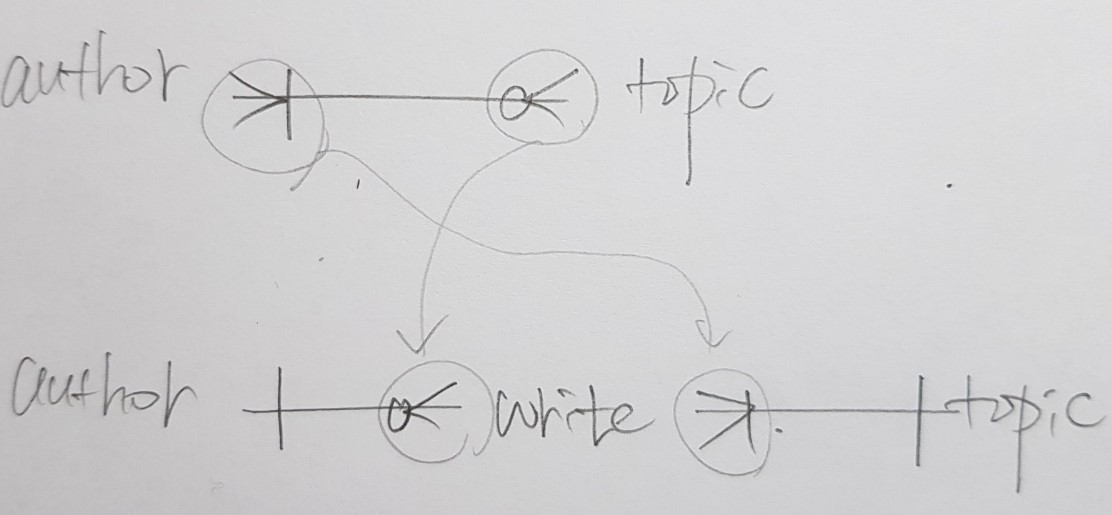 author topic
author write topic